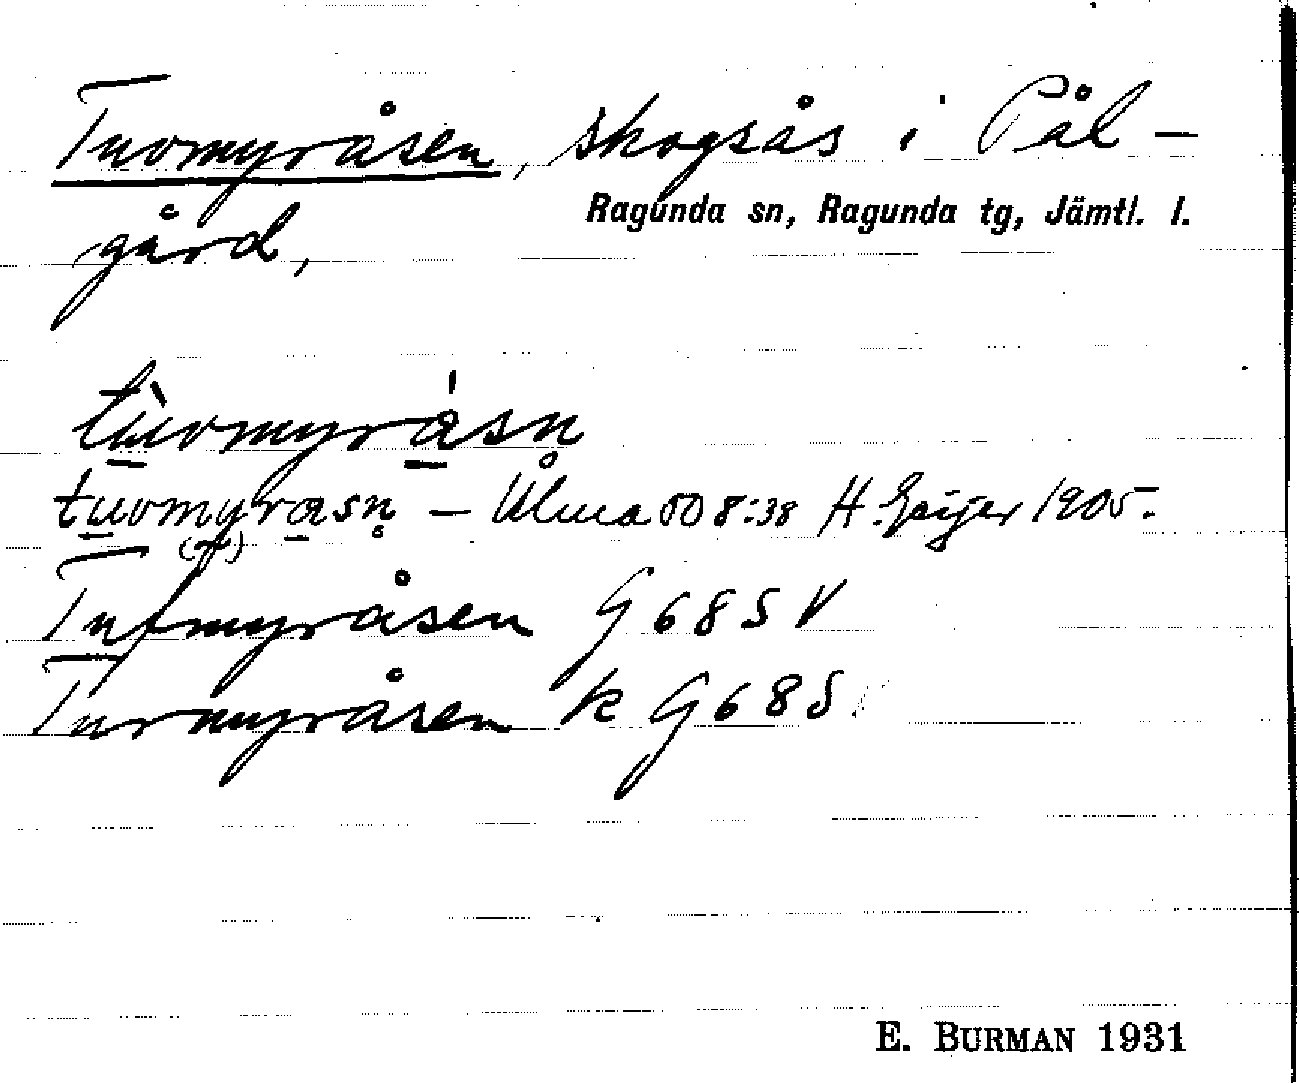 Tuvomyråsen, skogsås i Pål-
Ragunda sn, Ragunda tg, Jämtl. l.
gård,
tùvomyrǻsn
tuvomyrasn̥ – Ulma 50 8:38 H. Geijer 1905.
(r)
Tufmyråsen G 68 S V
Turmyråsen k G 68 S
E. BURMAN 1931